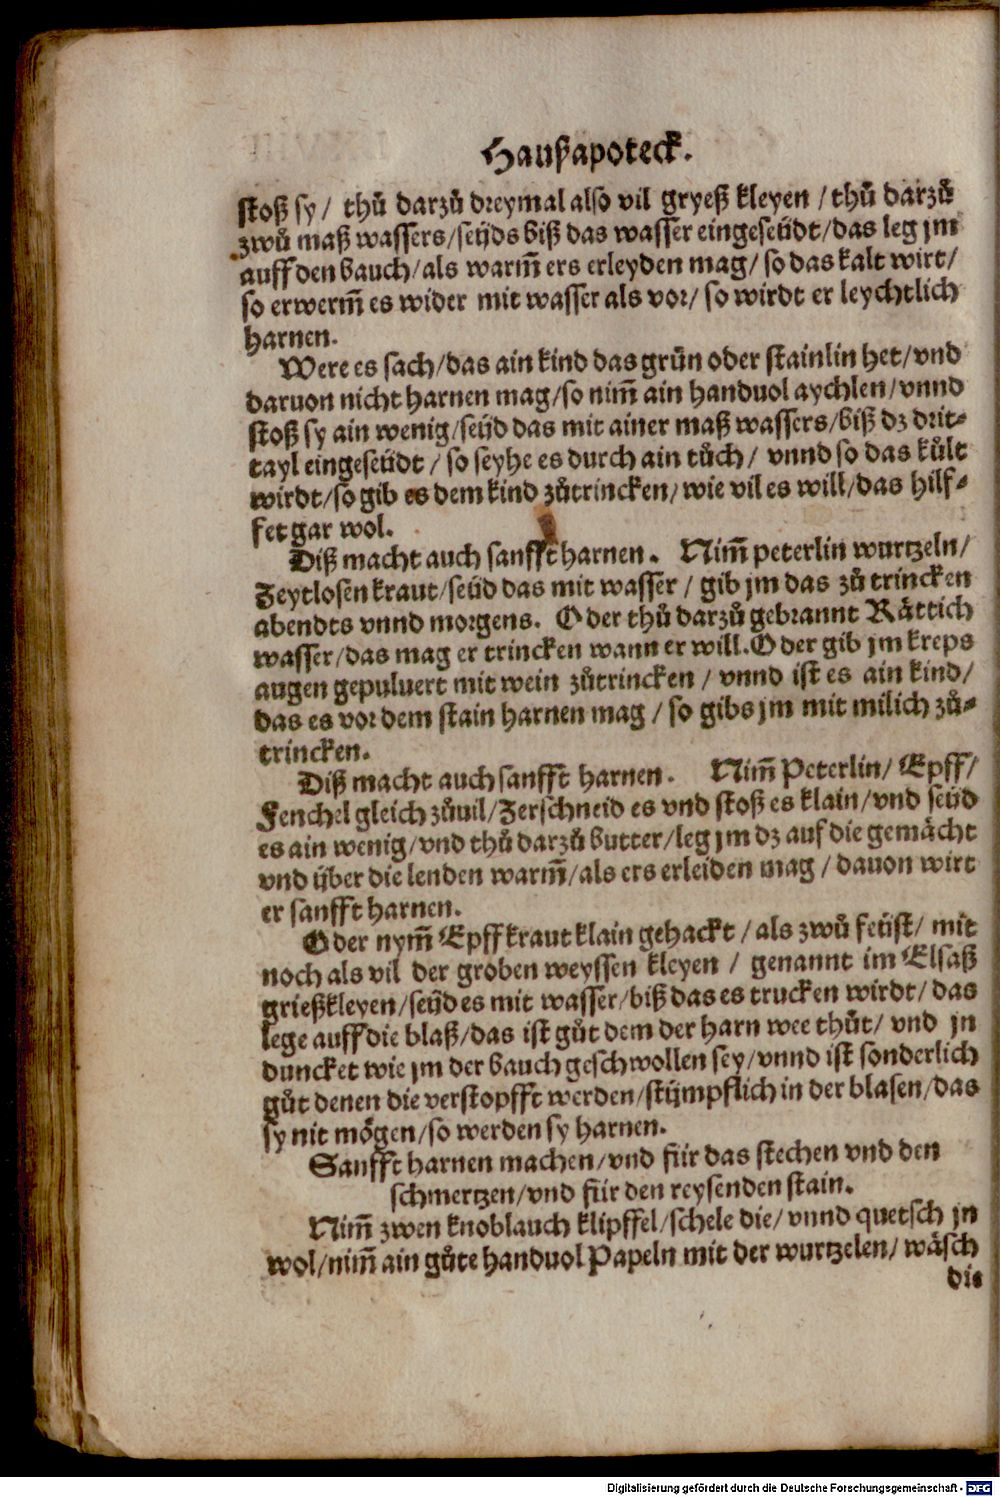 Haußapoteck.
stoß sy / thů darzů dreymal also vil gryeß kleyen / thů darzů
zwů maß wassers / seüds biß das wasser eingeseüdt / das leg jm
auff den bauch / als warm̃ ers erleyden mag / so das kalt wirt /
so erwerm̃ es wider mit wasser als vor / so wirdt er leychtlich
harnen.
Were es sach / das ain kind das grün oder stainlin het / vnd
daruon nicht harnen mag / so nim̃ ain handuol aychlen / vnnd
stoß sy ain wenig / seüd das mit ainer maß wassers / biß dz drit-
tayl eingeseüdt / so seyhe es durch ain tůch / vnnd so das kült
wirdt / so gib es dem kind zůtrincken / wie vil es will / das hilf-
fet gar wol.
Diß macht auch sanfft harnen. Nim̃ peterlin wurtzeln /
Zeytlosen kraut / seüd das mit wasser / gib jm das zů trincken
abendts vnnd morgens. Oder thů darzů gebrannt Rättich
wasser / das mag er trincken wann er will. Oder gib jm kreps
augen gepuluert mit wein zůtrincken / vnnd ist es ain kind /
das es vor dem stain harnen mag / so gibs jm mit milich zů-
trincken.
Diß macht auch sanfft harnen. Nim̃ Peterlin / Epff /
Fenchel gleich zůuil / Zerschneid es vnd stoß es klain / vnd seüd
es ain wenig / vnd thů darzů butter / leg jm dz auf die gemächt
vnd über die lenden warm̃ / als ers erleiden mag / dauon wirt
er sanfft harnen.
Oder nym̃ Epffkraut klain gehackt / als zwů feüst / mit
noch als vil der groben weyssen kleyen / genannt im Elsaß
grießkleyen / seüd es mit wasser / biß das es trucken wirdt / das
lege auff die blaß / das ist gůt dem der harn wee thůt / vnd jn
duncket wie jm der bauch geschwollen sey / vnnd ist sonderlich
gůt denen die verstopfft werden / stümpflich in der blasen / das
sy nit mögen / so werden sy harnen.
Sanfft harnen machen / vnd für das stechen vnd den
schmertzen / vnd für den reysenden stain.
Nim̃ zwen knoblauch klipffel / schele die / vnnd quetsch jn
wol / nim̃ ain gůte handuol Papeln mit der wurtzelen / wäsch
die
Digitalisierung gefördert durch die Deutsche Forschungsgemeinschaft - DFG